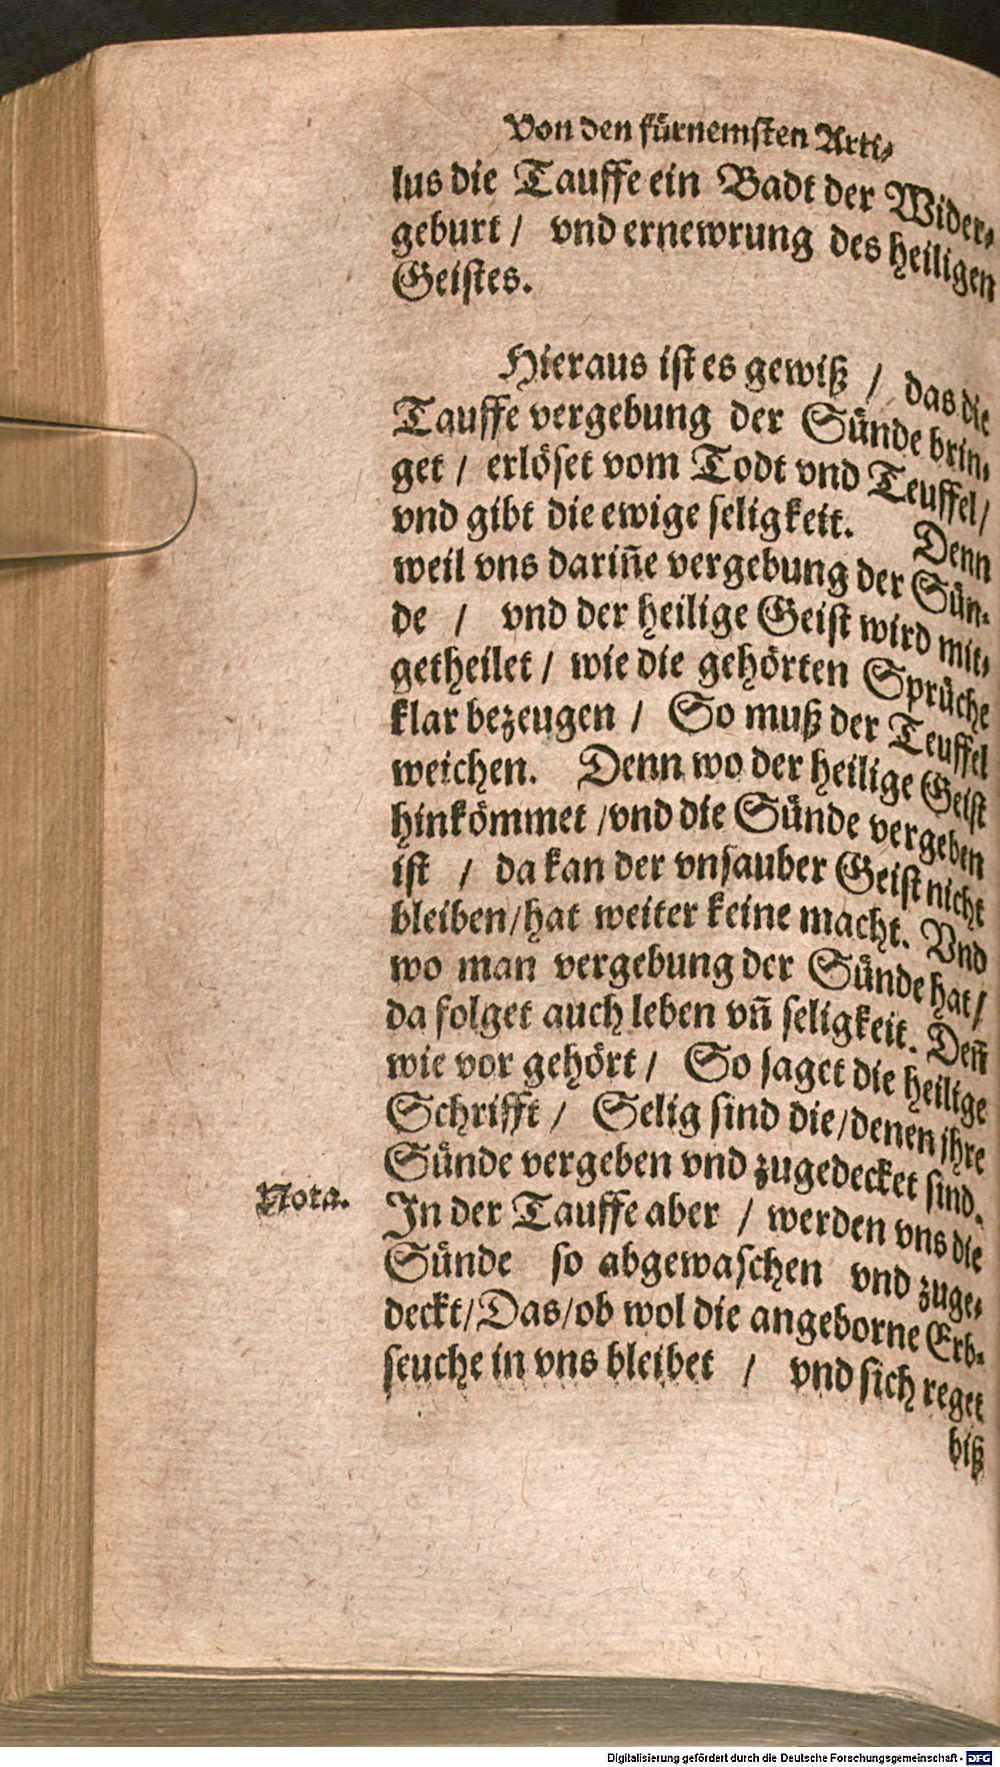 Von den fürnemsten Arti⸗
lus die Tauffe ein Badt der Wider⸗
geburt / vnd ernewrung des heiligen
Geistes.
Hieraus ist es gewiß / das die
Tauffe vergebung der Sünde brin⸗
get / erlöset vom Todt vnd Teuffel /
vnd gibt die ewige seligkeit. Denn
weil vns dariñe vergebung der Sün⸗
de / vnd der heilige Geist wird mit⸗
getheilet / wie die gehörten Sprüche
klar bezeugen / So muß der Teuffel
weichen. Denn wo der heilige Geist
hinkömmet /vnd die Sünde vergeben
ist / da kan der vnsauber Geist nicht
bleiben/hat weiter keine macht. Vnd
wo man vergebung der Sünde hat /
da folget auch leben vñ seligkeit. Deñ
wie vor gehört / So saget die heilige
Schrifft / Selig sind die/denen ihre
Sünde vergeben vnd zugedecket sind.
Nota. In der Tauffe aber / werden vns die
Sünde so abgewaschen vnd zuge⸗
deckt/Das/ob wol die angeborne Erb⸗
seuche in vns bleibet / vnd sich reget
biß
Digitalisierung gefördert durch die Deutsche Forschungsgemeinschaft - DFG